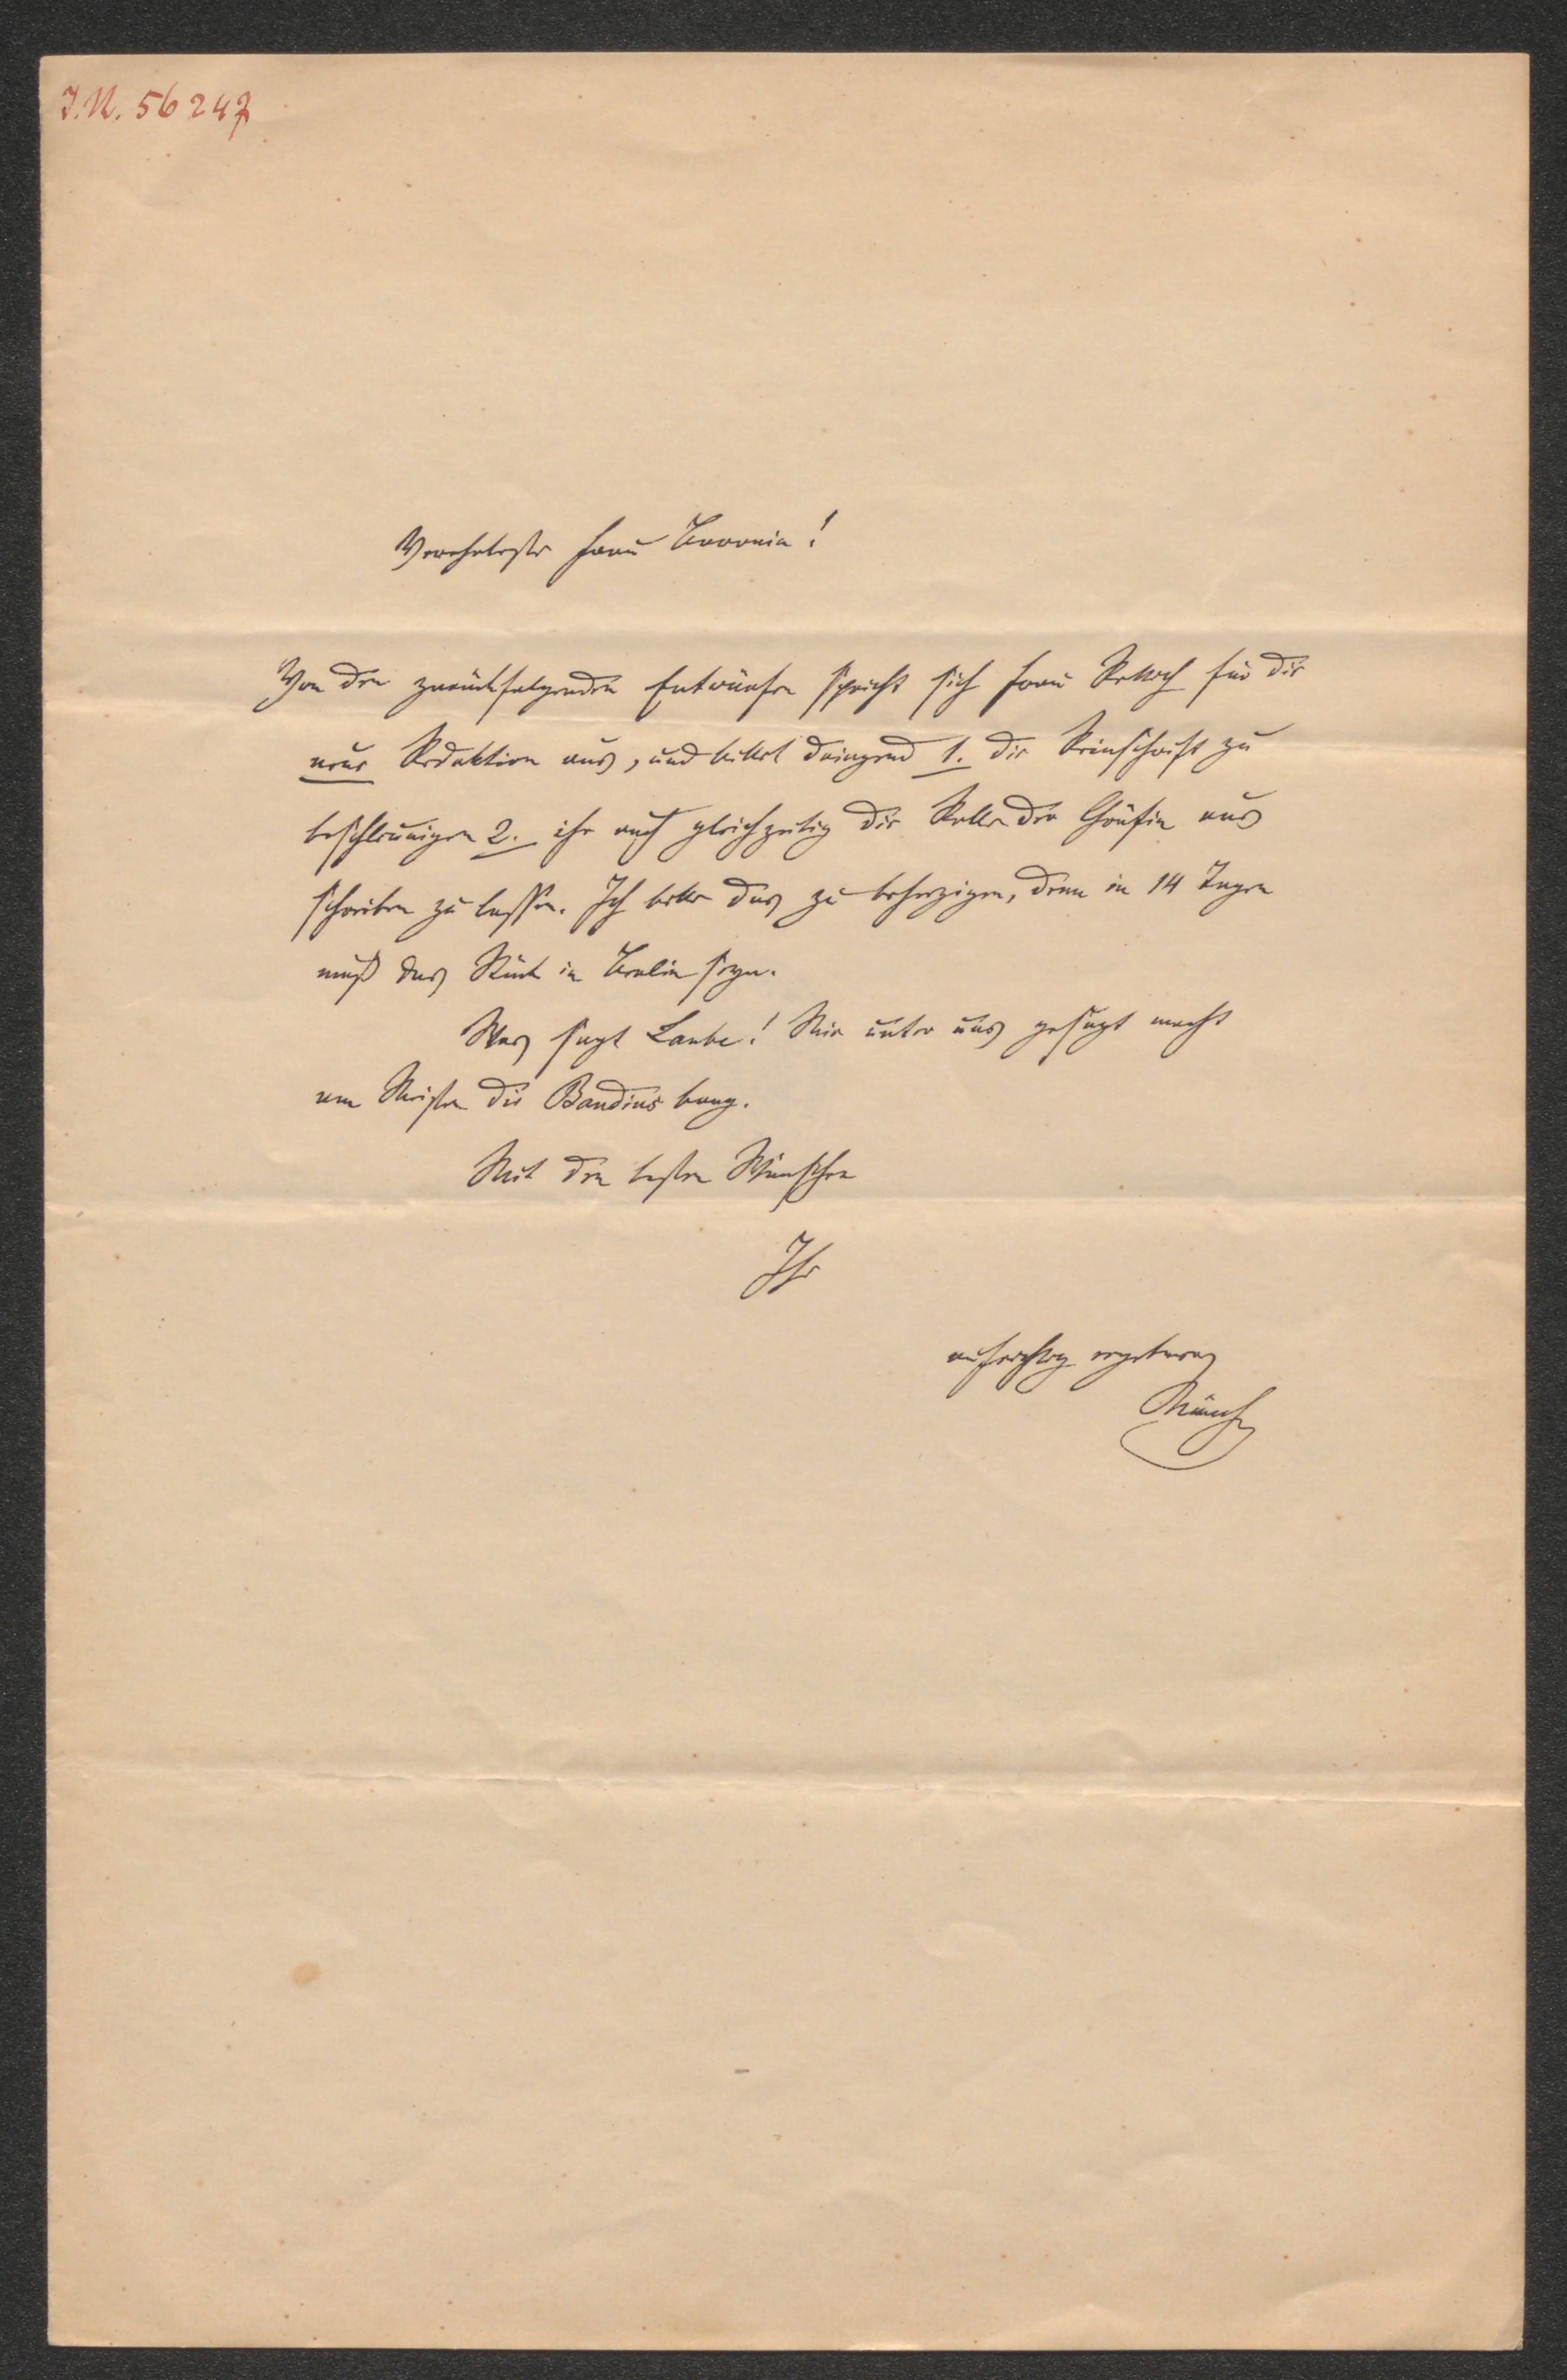 I.N. 56247
Verehrteste Frau Baronin!
Von den zurückfolgenden Entwürfen spricht sich Frau Rettich für die
neue Redaktion aus, und bittet dringend 1. die Reinschrift zu
beschleunigen 2. ihr auch gleichzeitig die Rolle der Gräfin aus
schreiben zu lassen. Ich bitte das zu beherzigen, denn in 14 Tagen
muß das Stück in Berlin seyn.
Was sagt Laube! Mir unter uns gesagt macht
am Meisten die Baudius bang.
Mit den besten Wünschen
Ihr
aufrichtig ergebener
Münch